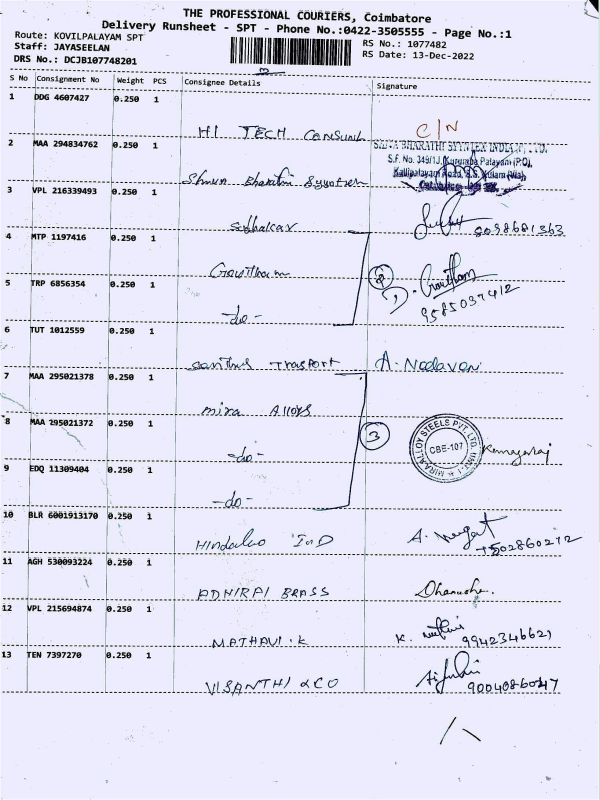 THE PROFESSIONAL COURIERS, Coimbatore
Delivery Runsheet - SPT - Phone No.:0422-3505555 - Page No.:1
Route: KOVILPALAYAM SPT
Staff: JAYASEELAN
DRS No.: DCJB107748201
RS No.: 1077482
RS Date: 13-Dec-2022
S No Consignment No Weight PCS Consignee Details Signature
1 DDG 4607427 0.250 1
HI TECH C/N
2 MAA 294834762 0.250 1
S.F. No. 349/1J, Kurumba Palayam (P.O),
Bharathi
3 VPL 216339493 0.250 1
8098681363
4 MTP 1197416 0.250 1
Goutham 2 Goutham
5 TRP 6856354 0.250 1
9585037412
-do-
6 TUT 1012559 0.250 1
Trasport A. Neelaveni
7 MAA 295021378 0.250 1
mira Alloys
8 MAA 295021372 0.250 1
-do- 3 MIRA ALLOY STEELS PVT. LTD. CBE-107
9 EDQ 11309404 0.250 1
-do-
10 BLR 6001913170 0.250 1
Hindalco InD A.
11 AGH 530093224 0.250 1
BRASS
12 VPL 215694874 0.250 1
MATHAVI.K K. 9942346621
13 TEN 7397270 0.250 1
VISANTHI & CO